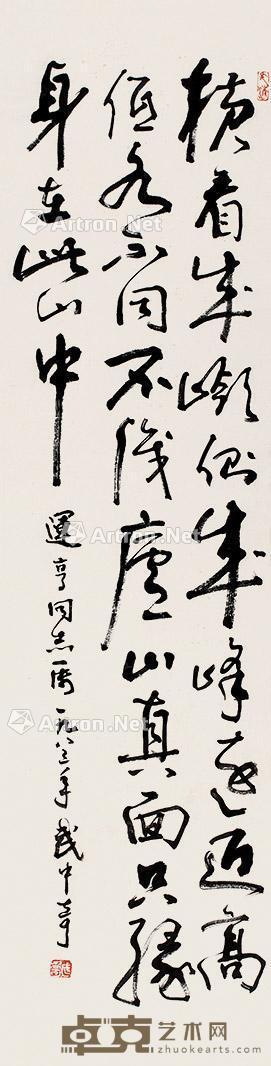 横看成岭侧成峰远近高
低各不同不识庐山真面只缘
身在此山中
运亨同志属一九八三年武中奇
Artron.Net
卓克艺术网
zhuokearts.com